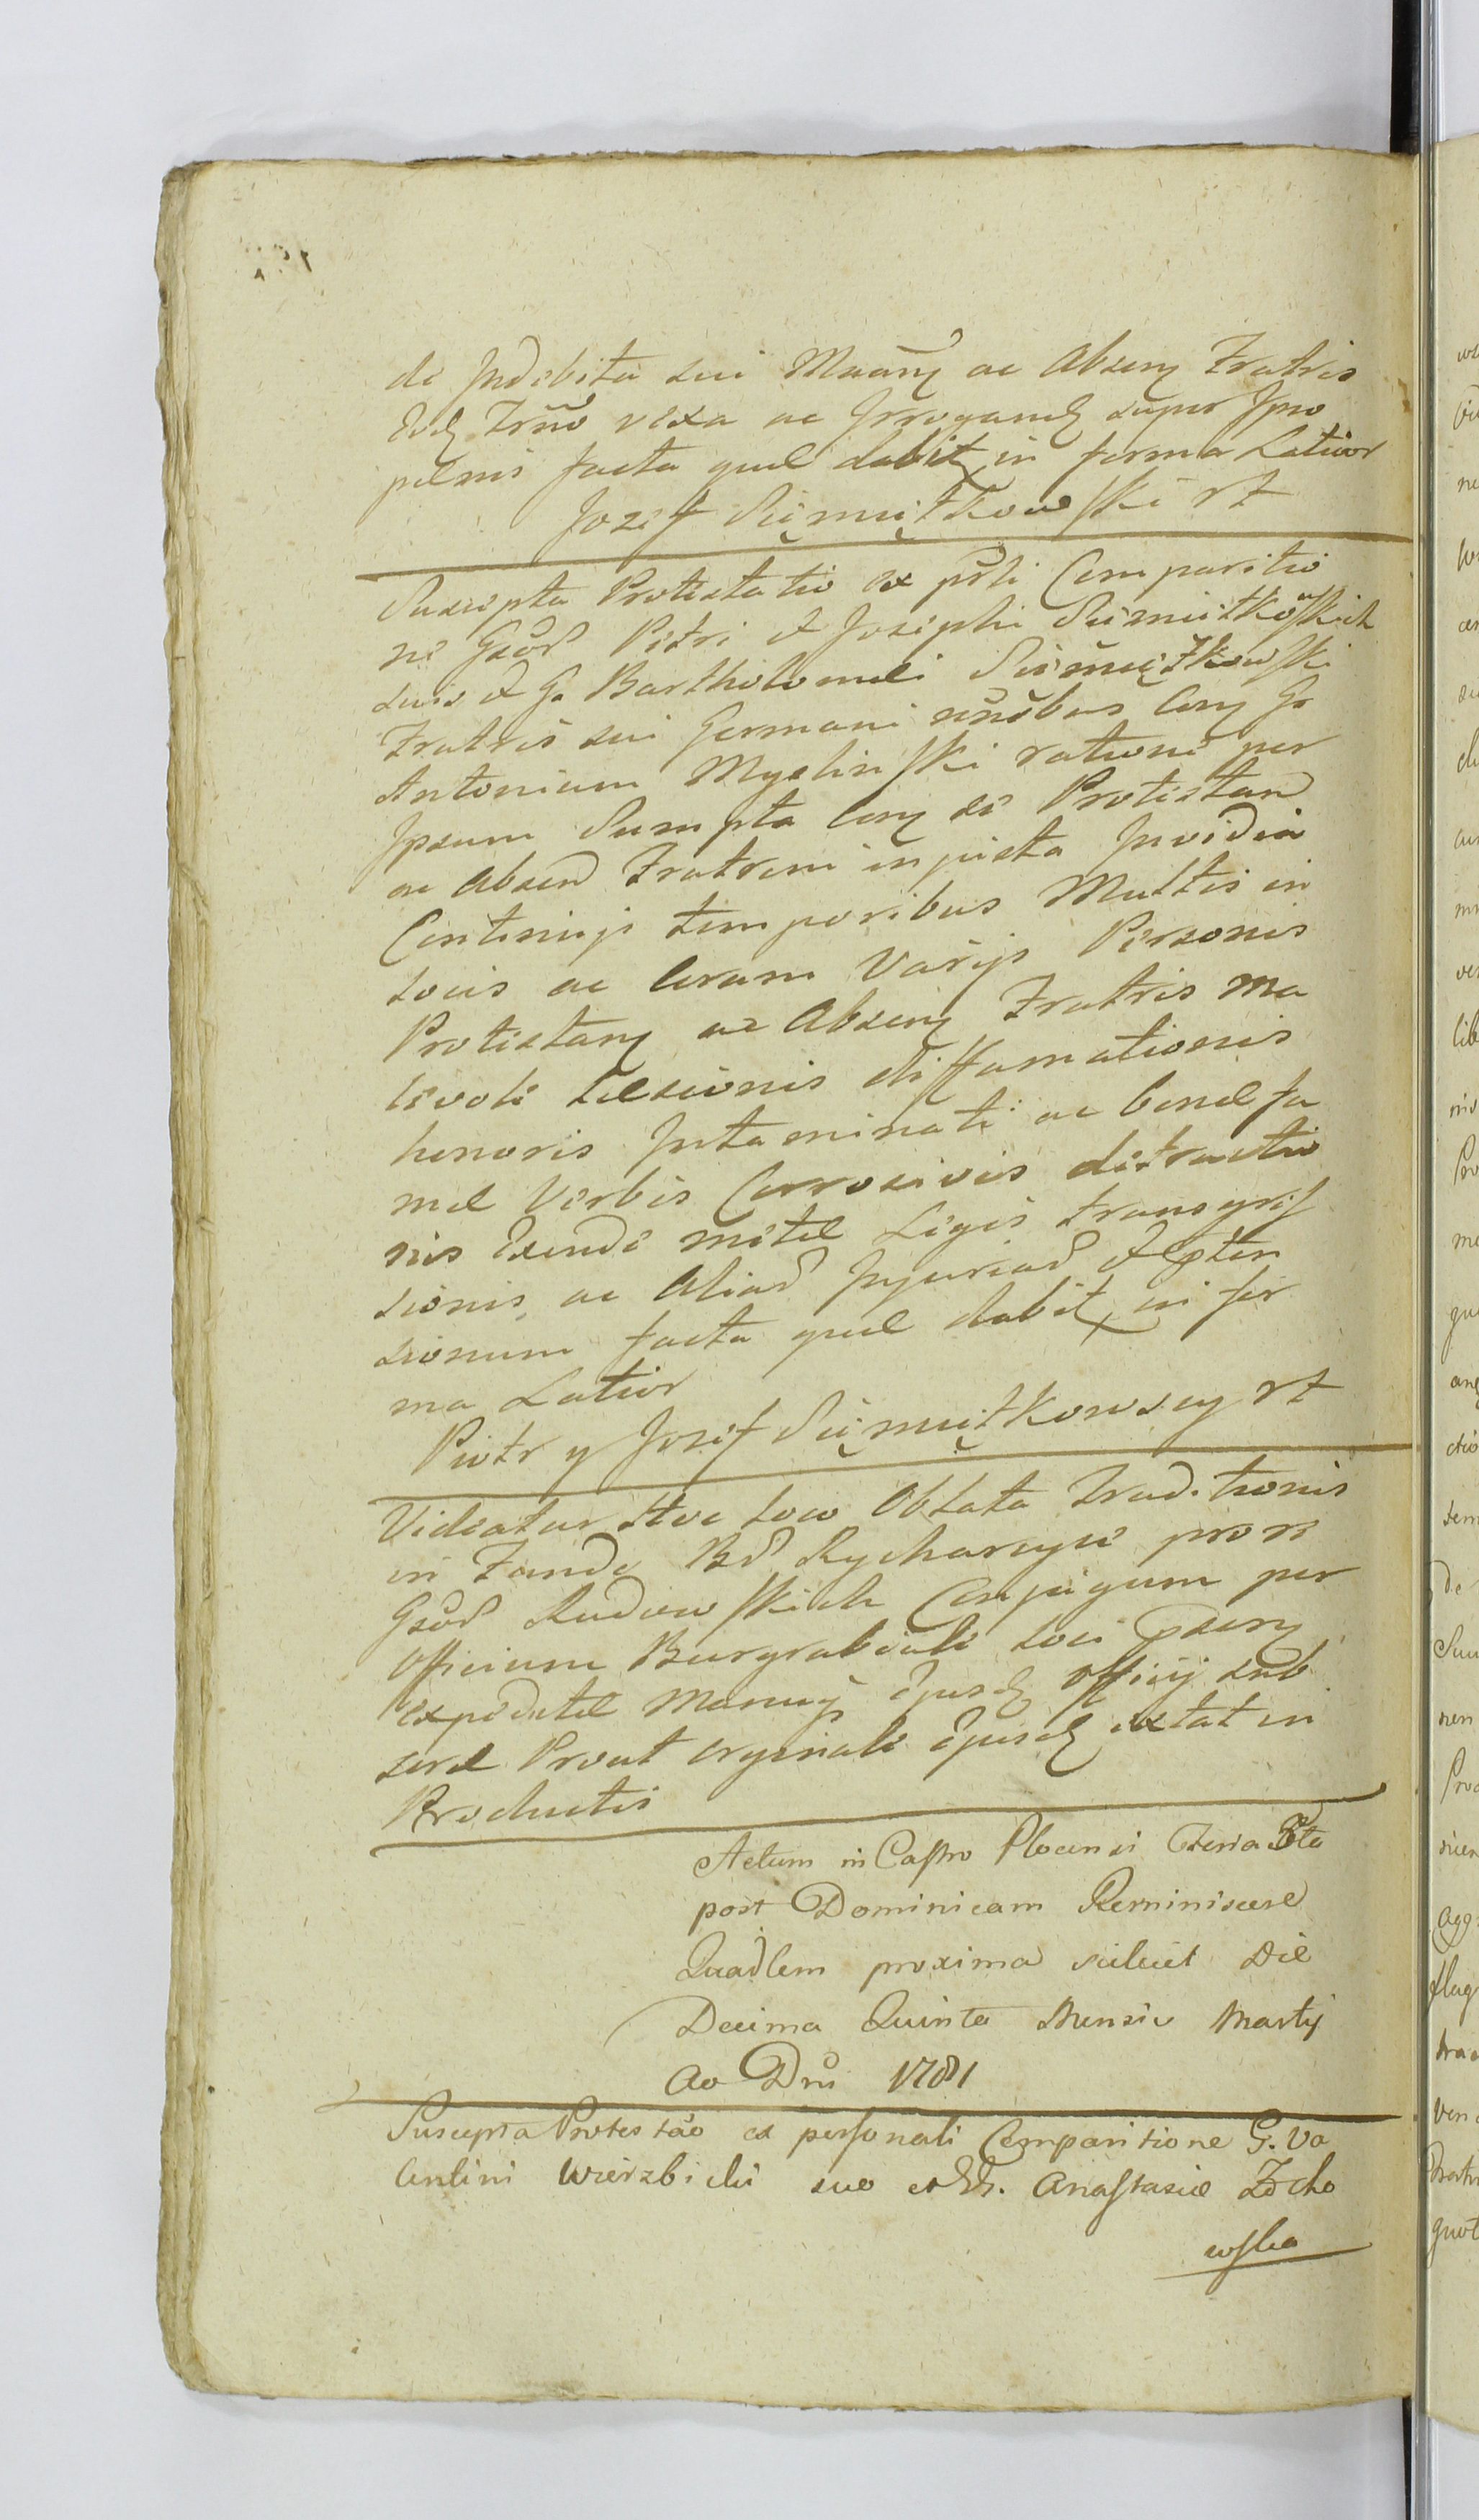 de Indebita sui Maanꝫ ac Absenꝫ Fratris
Eidꝫ Frno vexa ac Irrogandꝫ super Ipso
pelnis facta quae dabit in forma Latior
Jozef Siemiątkowski rt
Suscepta Protestatio ex psli Comparitio
ne Gsod Petri et Josephi Siemiątkowskich
suis et G. Bartholomaei Siemiątkowski
Fratris sui Germani nnobus Conꝫ G
Antonium Myslinski ratione per
Ipsum Sumpta Conꝫ se Protestan
ac Absend Fratrem injusta Invidia
Continujs temporibus Multis in
Locis ac Coram Varijs Personis
Protestanꝫ ac Absenꝫ Fratris ma
levole Laesionis diffamationis
honoris Intaminati ac bonae fa
mae Verbis Corrosivis detractio
nis Exinde mitae Legis transgres
sionis, ac Aliad Injuriad et pten
sionum facta quae dabit in for
ma Latior
Piotr y Jozef Siemiątkowscy rt
Videatur Hoc Loco Oblata Traditionis
in Fundo Bd Rycharcyce pro
Gsod Rudowskich Conjugum per
Officium Burgrabiale Loci psenꝫ
expeditae Manuꝫ ejusdꝫ Officij sub
scrae Prout orginale ejusdꝫ extat in
Productis
Actum in Castro Plocensi Feria 5ta
post Dominicam Reminiscere
Quadlem proxima scilicet Die
Decima Quinta Mensis Martij
Ao Dni 1781
Suscepta Protestao ex personali Comparitione G. Va
lentini Wierzbicki suo et Anastasiae Zocho
wska